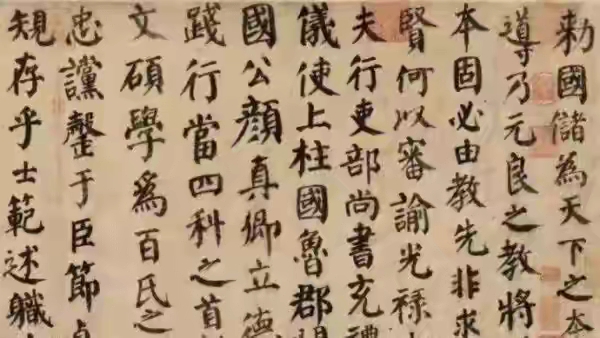 勅國儲為天下之本
導乃元良之教將
本固必由教先非求
賢何以審諭光祿
夫行吏部尚書充禮
儀使上柱國魯郡開
國公顏真卿立德
踐行當四科之首
文碩學爲百氏之
忠讜罄于臣節貞
規存乎士範述職